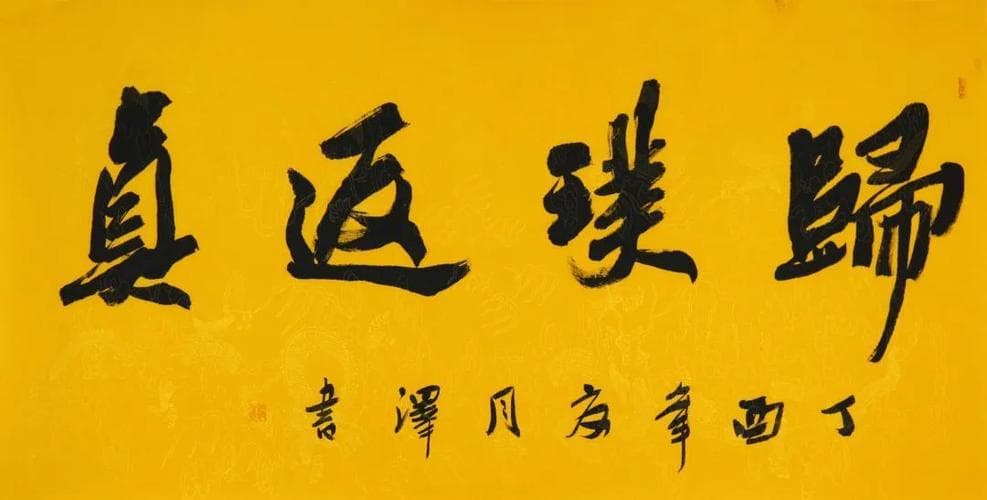 歸璞返真
丁酉年夏月澤書